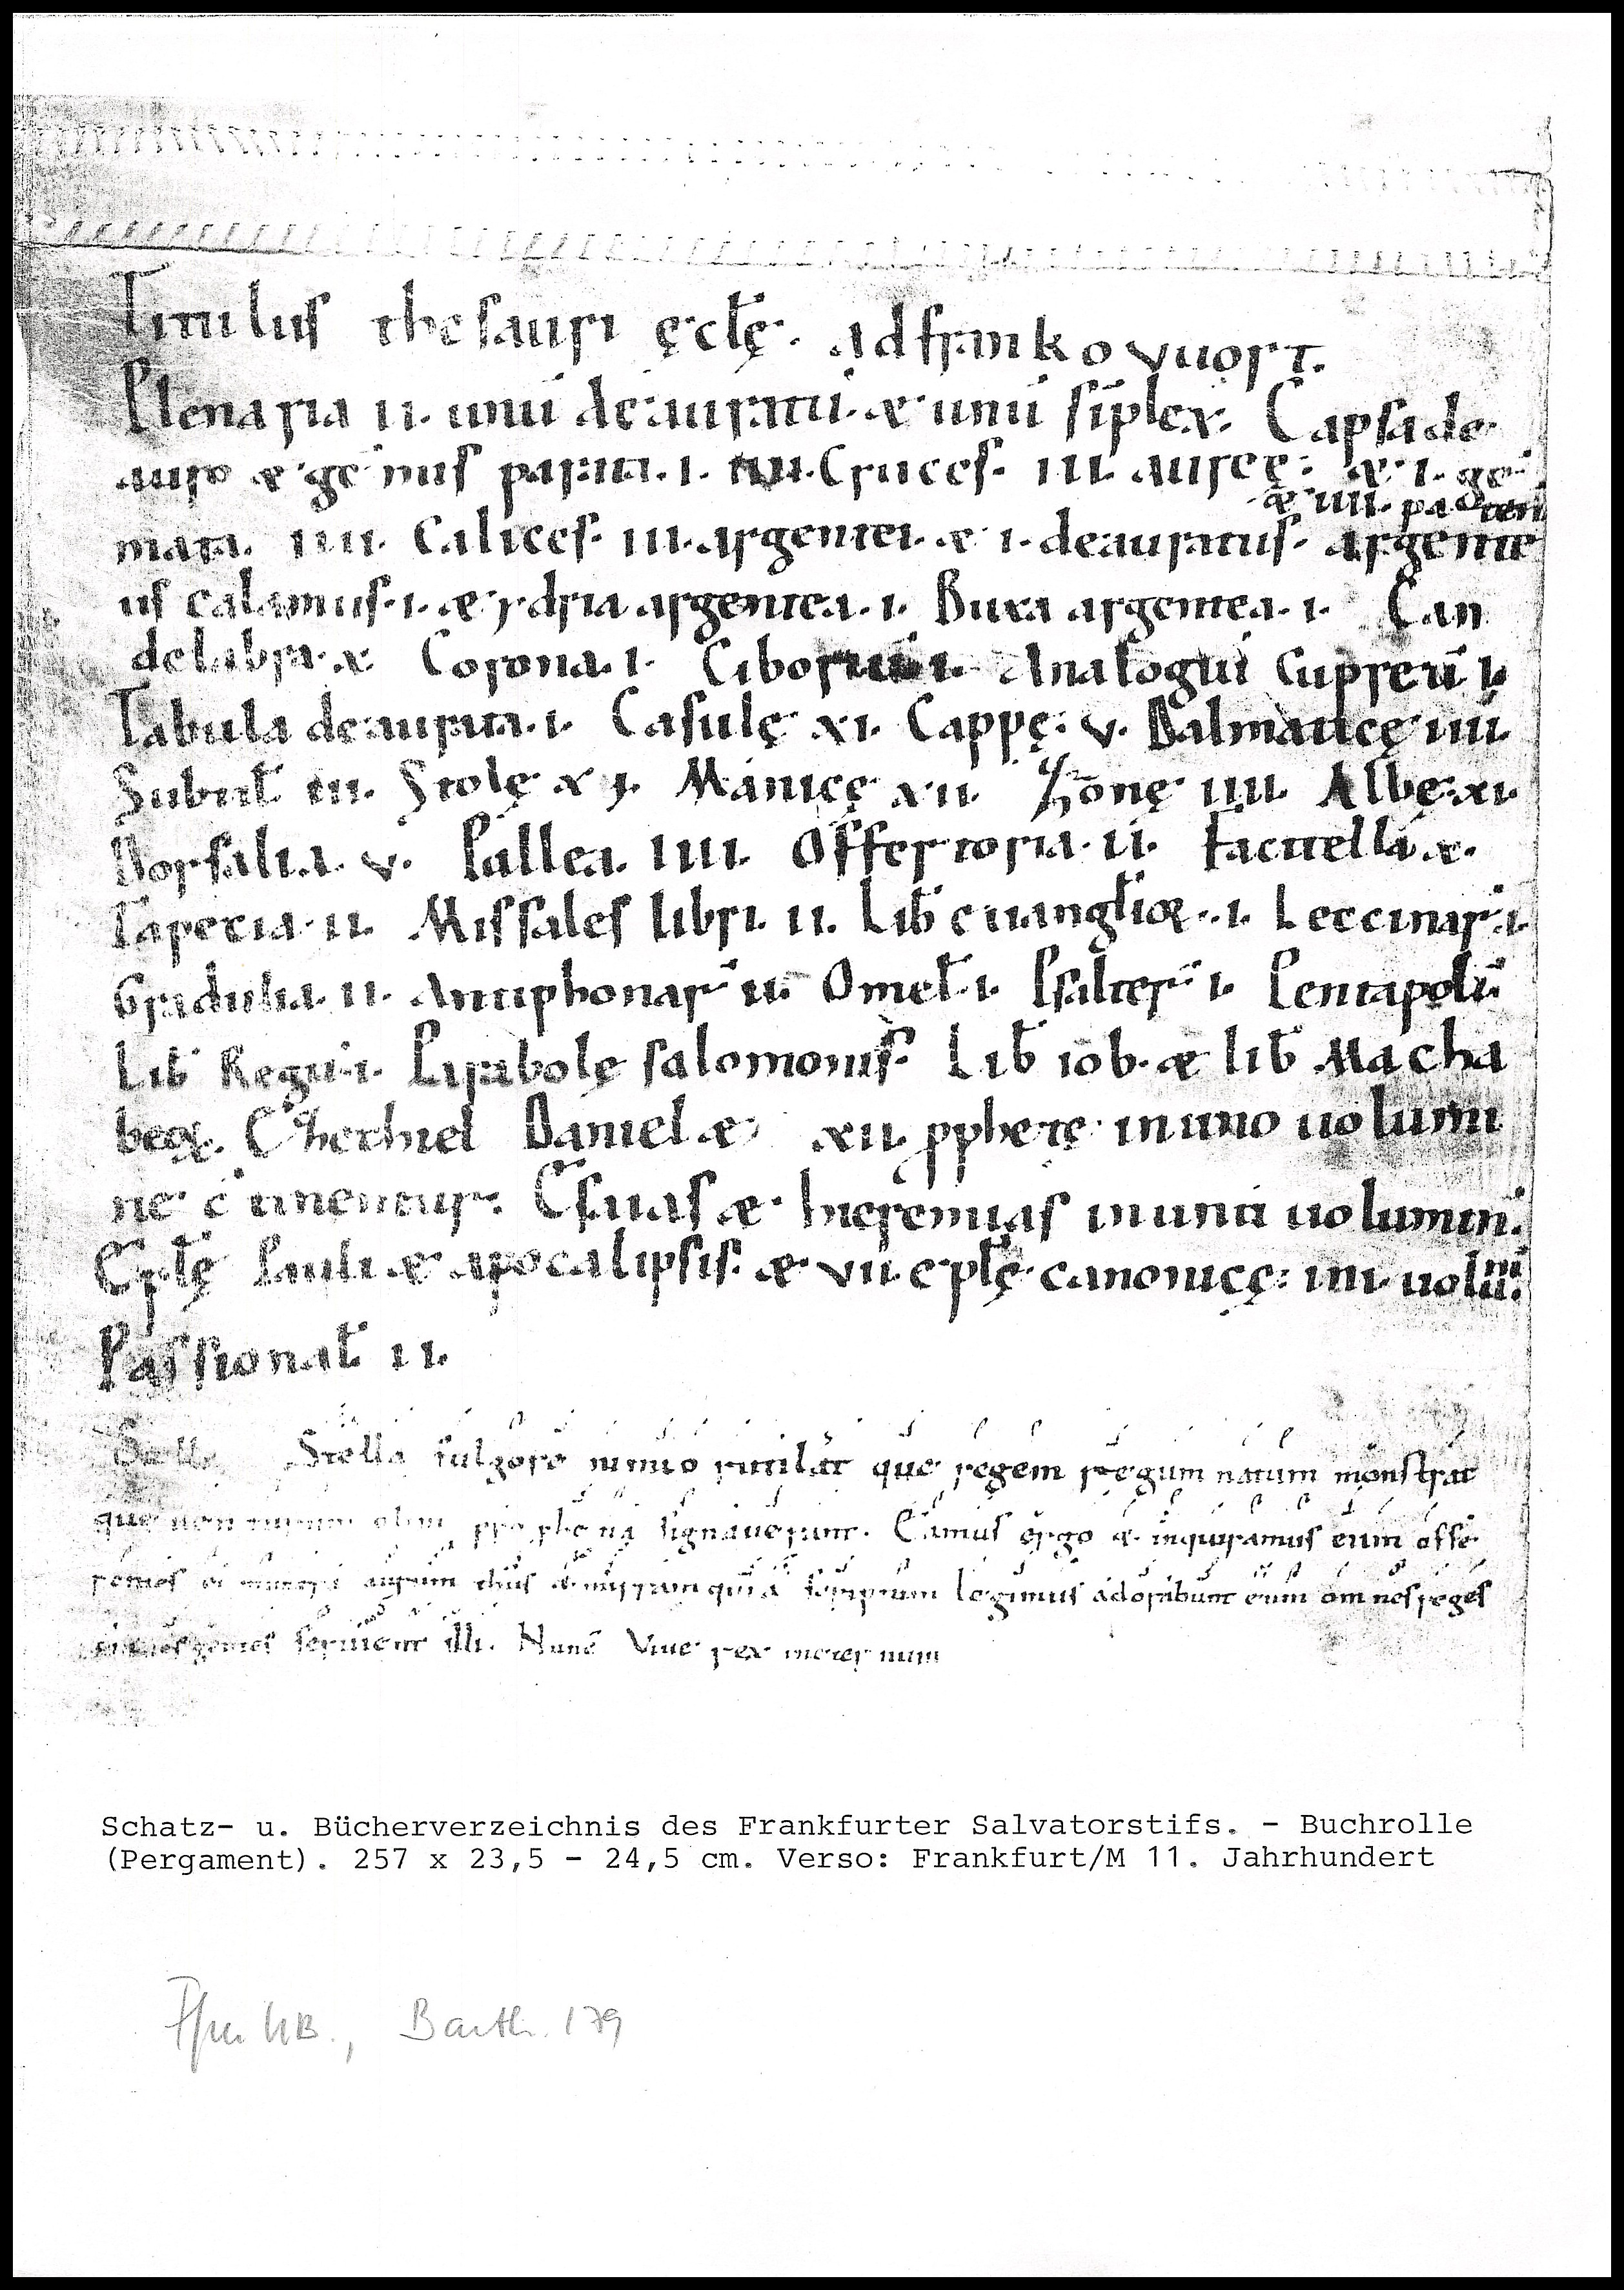 Titulus thesauri ęctę. ad frankovuort.
Plenaria .ii. unū deauratū. & unū sīplex. Capsa de
auro & gēmis parata .i. Cruces .iii. aureę. & .i. gē
& .iiii. pa
mata .iiii. Calices .iii. argentei. & .i. deauratus. argente
us calamus .i. & ydria argentea .i. Buxa argentea .i. Can
delabra .x. Corona .i. Ciboriū .i. Analogiū cupreū .i.
Tabula deaurata .i. Casulę .xi. Cappę .v. Dalmaticę .iiii.
Subtit̄ .iii. Stolę .xi. Manicę .xii. Zonę .iiii. Albę .xi.
Dorsalia .v. Pallea .iiii. Offertoria .ii. Facitella .x.
Tapecia .ii. Missales libri .ii. Lib̄ euangl̄ioꝝ .i. Lectinar̄ .i.
Gradulia .ii. Antiphonar̄ .ii. Omel̄ .i. Psalter̄ .i. Pentapolī
Lib̄ Regū .i. Parabolę salomonis. Lib̄ iob. & lib̄ Macha
beoꝝ. Ezechiel Daniel & xii. ꝓphetę in uno uolumi
ne ctinentur. Esaias & hieremias in uno uolumin.
Epl̄ę Pauli & apocalipsis. & vii epl̄ę canonicę: in .i. uolū.
Passional̄ .ii.
Stella Stella fulgore nimio rutilat que regem regum natum monstrat
quē uenturum olim prophetia signauerunt. Eamus ergo & inquiramus eum offe
rentes ei munera aurum thus & mirram quia scriptum legimus adorabunt eum omnes reges
omnes gentes seruient illi. Nunc Viue rex in eternum
Schatz- u. Bücherverzeichnis des Frankfurter Salvatorstifs. - Buchrolle
(Pergament). 257 x 23,5 - 24,5 cm. Verso: Frankfurt/M 11. Jahrhundert
Barth. 179